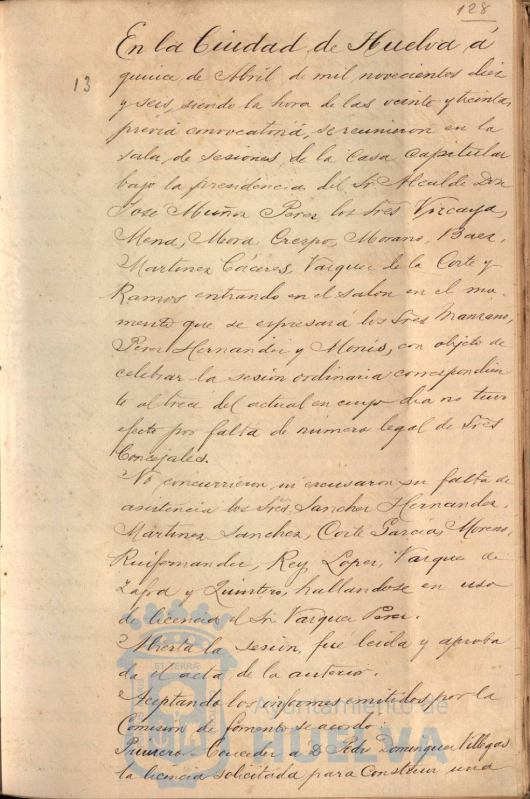 128
13
En la Ciudad de Huelva á
quince de Abril de mil novecientos diez
y seis, siendo la hora de las veinte y treinta,
previa convocatoria, se reunieron en la
sala de sesiones de la Casa Capitular
bajo la presidencia del Sr. Alcalde Don
José Muñoz Perez los Sres Vizcaya,
Mena, Mora, Crespo, Morano, Baez,
Martinez Cáceres, Vazquez de la Corte y
Ramos entrando en el salon en el mo-
mento que se espresará los Sres Manzano,
Perez Hernandez y Monís, con objeto de
celebrar la sesión ordinaria correspondien-
te al trece del actual en cuyo dia no tuvo
efecto por falta de número legal de Sres
Concejales.
No concurrieron ni escusaron su falta de
asistencia los Sres. Sanchez Hernandez,
Martinez Sanchez, Corte Garcia, Moreno,
Ruifernandez, Rey Lopez, Vazquez de
Zafra y Quintero, hallandose en uso
de licencia el Sr. Vazquez Perez.
Abierta la sesión, fué leida y aproba
da el acta de la anterior.
Aceptando los informes emitidos por la
Comisión de fomento se acordó:
Primero.- Conceder a D. Pedro Dominguez Villegas
la licencia solicitada para construir una
ET TERRÆ
Ayuntamiento de
HUELVA